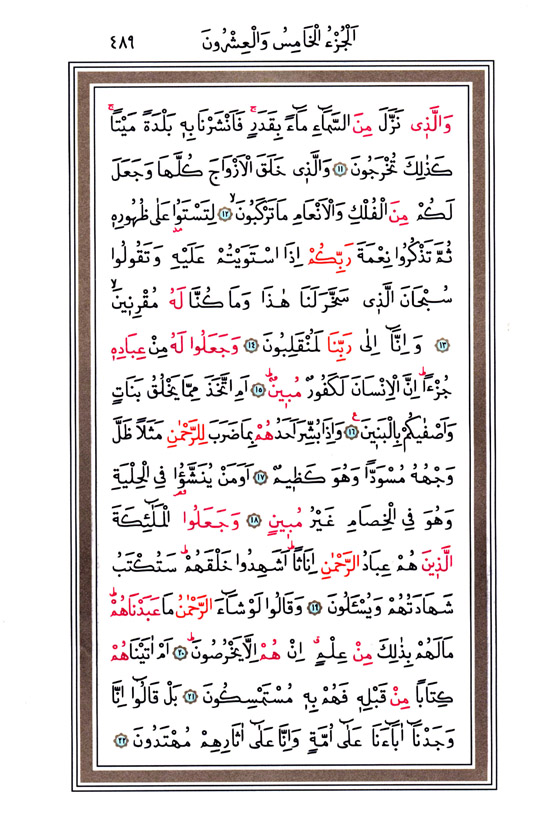 اَلْجُزْءُ الْخَامِسُ وَالْعِشْرُونَ ٤٨٩
وَالَّذ۪ى نَزَّلَ مِنَ السَّمَٓاءِ مَٓاءً بِقَدَرٍۚ فَاَنْشَرْنَا بِه۪ بَلْدَةً مَيْتًاۚ
كَذٰلِكَ تُخْرَجُونَ ﴿١١﴾ وَالَّذ۪ى خَلَقَ الْاَزْوَاجَ كُلَّهَا وَجَعَلَ
لَكُمْ مِنَ الْفُلْكِ وَالْاَنْعَامِ مَا تَرْكَبُونَۙ ﴿١٢﴾ لِتَسْتَوُ۫ا عَلٰى ظُهُورِه۪
ثُمَّ تَذْكُرُوا نِعْمَةَ رَبِّكُمْ اِذَا اسْتَوَيْتُمْ عَلَيْهِ وَتَقُولُوا
سُبْحَانَ الَّذ۪ى سَخَّرَ لَنَا هٰذَا وَمَا كُنَّا لَهُ مُقْرِن۪ينَۙ
﴿١٣﴾ وَاِنَّٓا اِلٰى رَبِّنَا لَمُنْقَلِبُونَ ﴿١٤﴾ وَجَعَلُوا لَهُ مِنْ عِبَادِه۪
جُزْءًاۜ اِنَّ الْاِنْسَانَ لَكَفُورٌ مُب۪ينٌۜ ﴿١٥﴾ اَمِ اتَّخَذَ مِمَّا يَخْلُقُ بَنَاتٍ
وَاَصْفٰيكُمْ بِالْبَن۪ينَ ﴿١٦﴾ وَاِذَا بُشِّرَ اَحَدُهُمْ بِمَا ضَرَبَ لِلرَّحْمٰنِ مَثَلًا ظَلَّ
وَجْهُهُ مُسْوَدًّا وَهُوَ كَظ۪يمٌ ﴿١٧﴾ اَوَمَنْ يُنَشَّؤُ۬ا فِى الْحِلْيَةِ
وَهُوَ فِى الْخِصَامِ غَيْرُ مُب۪ينٍ ﴿١٨﴾ وَجَعَلُوا الْمَلٰٓئِكَةَ
الَّذ۪ينَ هُمْ عِبَادُ الرَّحْمٰنِ اِنَاثًاۜ اَشَهِدُوا خَلْقَهُمْۜ سَتُكْتَبُ
شَهَادَتُهُمْ وَيُسْـَٔلُونَ ﴿١٩﴾ وَقَالُوا لَوْ شَٓاءَ الرَّحْمٰنُ مَا عَبَدْنَاهُمْۜ
مَا لَهُمْ بِذٰلِكَ مِنْ عِلْمٍۗ اِنْ هُمْ اِلَّا يَخْرُصُونَۜ ﴿٢٠﴾ اَمْ اٰتَيْنَاهُمْ
كِتَابًا مِنْ قَبْلِه۪ فَهُمْ بِه۪ مُسْتَمْسِكُونَ ﴿٢١﴾ بَلْ قَالُٓوا اِنَّا
وَجَدْنَٓا اٰبَٓاءَنَا عَلٰٓى اُمَّةٍ وَاِنَّا عَلٰٓى اٰثَارِهِمْ مُهْتَدُونَ ﴿٢٢﴾